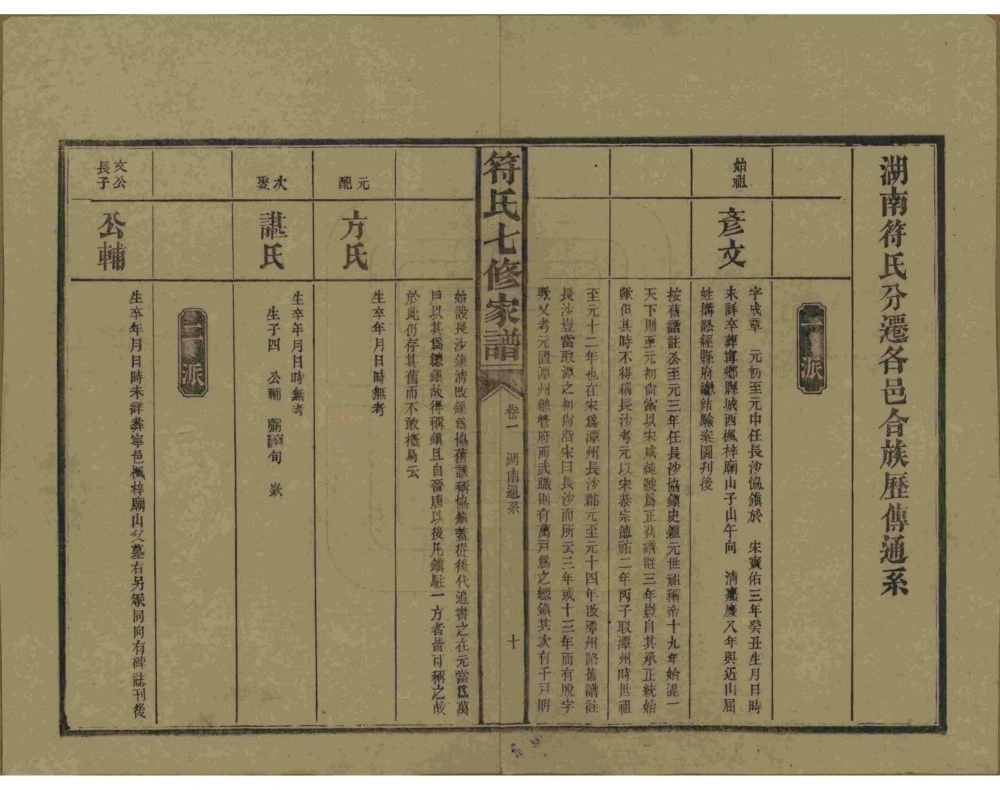 湖南符氏分遷各邑合族歷傳通系
一派
始祖
彥文
字成章　元初至元中任長沙協鎮於　宋寶佑三年癸丑生月日時
未詳卒葬寧鄉縣城西楓梓廟山子山午向　清嘉慶八年與近山屈
姓搆訟經縣府讞結驗案圖刋後
按舊譜註公至元三年任長沙協鎮史鑑元世祖稱帝十九年始混一
天下則至元初尚當以宋咸淳號為正舊譜註三年豈自其承正統始
歟但其時不得稱長沙考元以宋恭宗德祐二年丙子取潭州時世祖
至元十二年也在宋為潭州長沙郡元至元十四年改潭州路舊譜註
長沙豈當取潭之初尚沿宋曰長沙而所云三年或十三年而有脫字
歟又考元置潭州總管府而武職則有萬戸為之總鎮其次有千戸明
符氏七修家譜
卷一　湖南通系
十
始設長沙鎮清改鎮為協舊譜稱協鎮蓋從後代追書之在元當為萬
戸以其為總鎮故得稱鎮且自晉唐以後凡鎮駐一方者皆可稱之故
於此仍存其舊而不敢概易云
元配
方氏
生卒年月日時無考
次娶
諶氏
生卒年月日時無考
生子四　公輔　旬　歟
二派
文公長子
公輔
生卒年月日時未詳葬寧邑楓梓廟山父墓右另冢同向有碑誌刊後